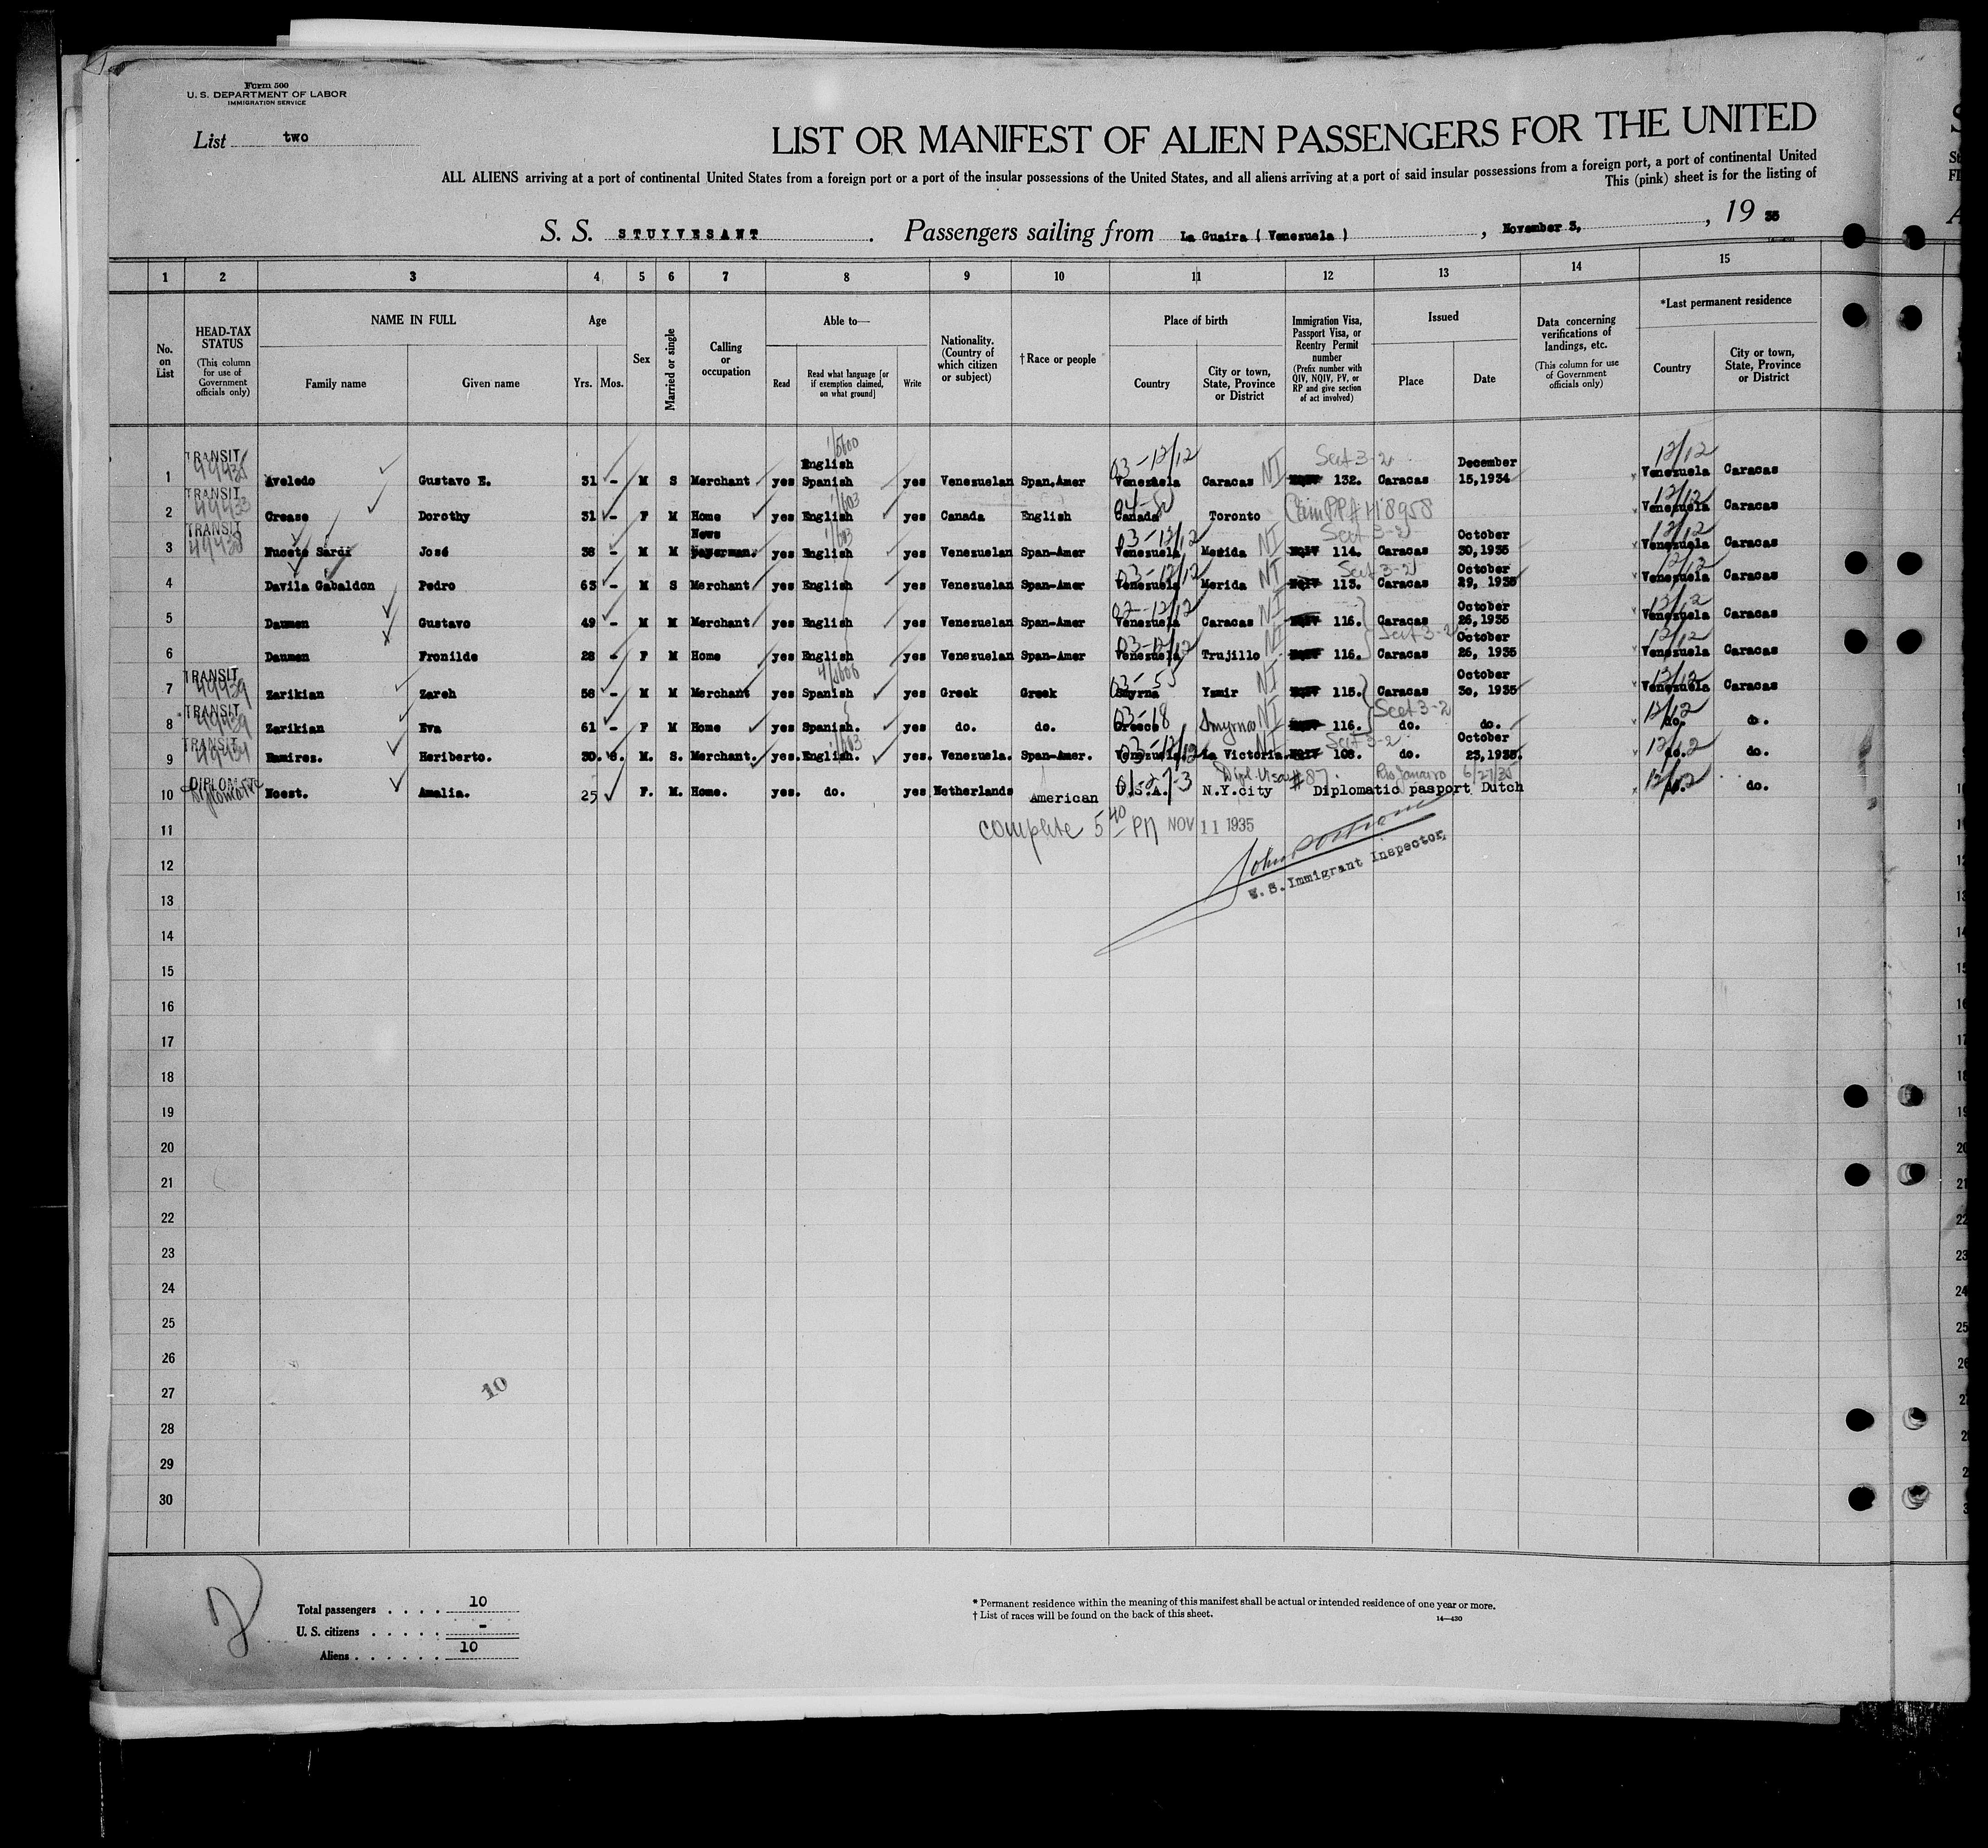 Form 500
U. S. DEPARTMENT OF LABOR
IMMIGRATION SERVICE
List two
LIST OR MANIFEST OF ALIEN PASSENGERS FOR THE UNITED
ALL ALIENS arriving at a port of continental United States from a foreign port or a port of the insular possessions of the United States, and all aliens arriving at a port of said insular possessions from a foreign port, a port of continental United
This (pink) sheet is for the listing of
S. S. STUYVESANT . Passengers sailing from La Guaira ( Venezuela ) , November 3, , 19 35
1 2 3 4 5 6 7 8 9 10 11 12 13 14 15
No. on List
HEAD-TAX STATUS (This column for use of Government officials only)
NAME IN FULL Family name Given name
Age Yrs. Mos.
Sex
Married or single
Calling or occupation
Able to— Read Read what language [or if exemption claimed, on what ground] Write
Nationality. (Country of which citizen or subject)
† Race or people
Place of birth Country City or town, State, Province or District
Immigration Visa, Passport Visa, or Reentry Permit number (Prefix number with QIV, NQIV, PV, or RP and give section of act involved)
Issued Place Date
Data concerning verifications of landings, etc. (This column for use of Government officials only)
*Last permanent residence Country City or town, State, Province or District
1 TRANSIT Aveledo Gustavo E. 31 - M S Merchant yes English Spanish yes Venezuelan Span.Amer 03-12/12 Venezuela Caracas NI 132. Sect 3-2 Caracas December 15,1934 12/12 Venezuela Caracas
2 TRANSIT 49433 Crease Dorothy 31 - F M Home yes English yes Canada English Canada Toronto PP# H18958 12/12 Venezuela Caracas
3 TRANSIT 49438 Nucete Sardi José 38 - M M News yes English yes Venezuelan Span-Amer 03-12/12 Venezuela Merida NI 114. Sect 3-2 Caracas October 30,1935 12/12 Venezuela Caracas
4 Davila Gabaldon Pedro 63 - M S Merchant yes English yes Venezuelan Span-Amer 03-12/12 Venezuela Merida NI 113. Sect 3-2 Caracas October 29, 1935 12/12 Venezuela Caracas
5 Daumen Gustavo 49 - M M Merchant yes English yes Venezuelan Span-Amer 02-12/12 Venezuela Caracas NI 116. Caracas October 26,1935 12/12 Venezuela Caracas
6 Daumen Fronilde 28 - F M Home yes English yes Venezuelan Span-Amer 03-12/12 Venezuela Trujillo NI 116. Sect 3-2 Caracas October 26, 1935 12/12 Venezuela Caracas
7 TRANSIT 49439 Zarikian Zareh 58 - M M Merchant yes Spanish yes Greek Greek 03-55 Smyrna Ysmir NI 115. Caracas October 30, 1935 12/12 Venezuela Caracas
8 TRANSIT 49439 Zarikian Eva 61 - F M Home yes Spanish. yes do. do. 03-18 Greece Smyrna NI 116. Sect 3-2 do. do. 12/12 do. do.
9 TRANSIT 49434 Ramirez. Heriberto. 30. 8. M. S. Merchant. yes. English. yes. Venezuela. Span-Amer. 03-12/12 Venezuela. La Victoria. NI 108. Sect 3-2 do. October 23,1935. 12/12 do. do.
10 DIPLOMATIC Diplomatic Noest. Amalia. 25 F. M. Home. yes. do. yes Netherlands American U.S.A. N.Y.city Dipl. Visa #87 Rio Janairo 6/27/35 Diplomatic pasport Dutch 12/12 do. do.
complete 5 40 PM NOV 11 1935
John
U. S. Immigrant Inspector.
11
12
13
14
15
16
17
18
19
20
21
22
23
24
25
26
27
10
28
29
30
2
Total passengers . . . . 10
U. S. citizens . . . . . -
Aliens . . . . . . 10
* Permanent residence within the meaning of this manifest shall be actual or intended residence of one year or more.
† List of races will be found on the back of this sheet.
14—430